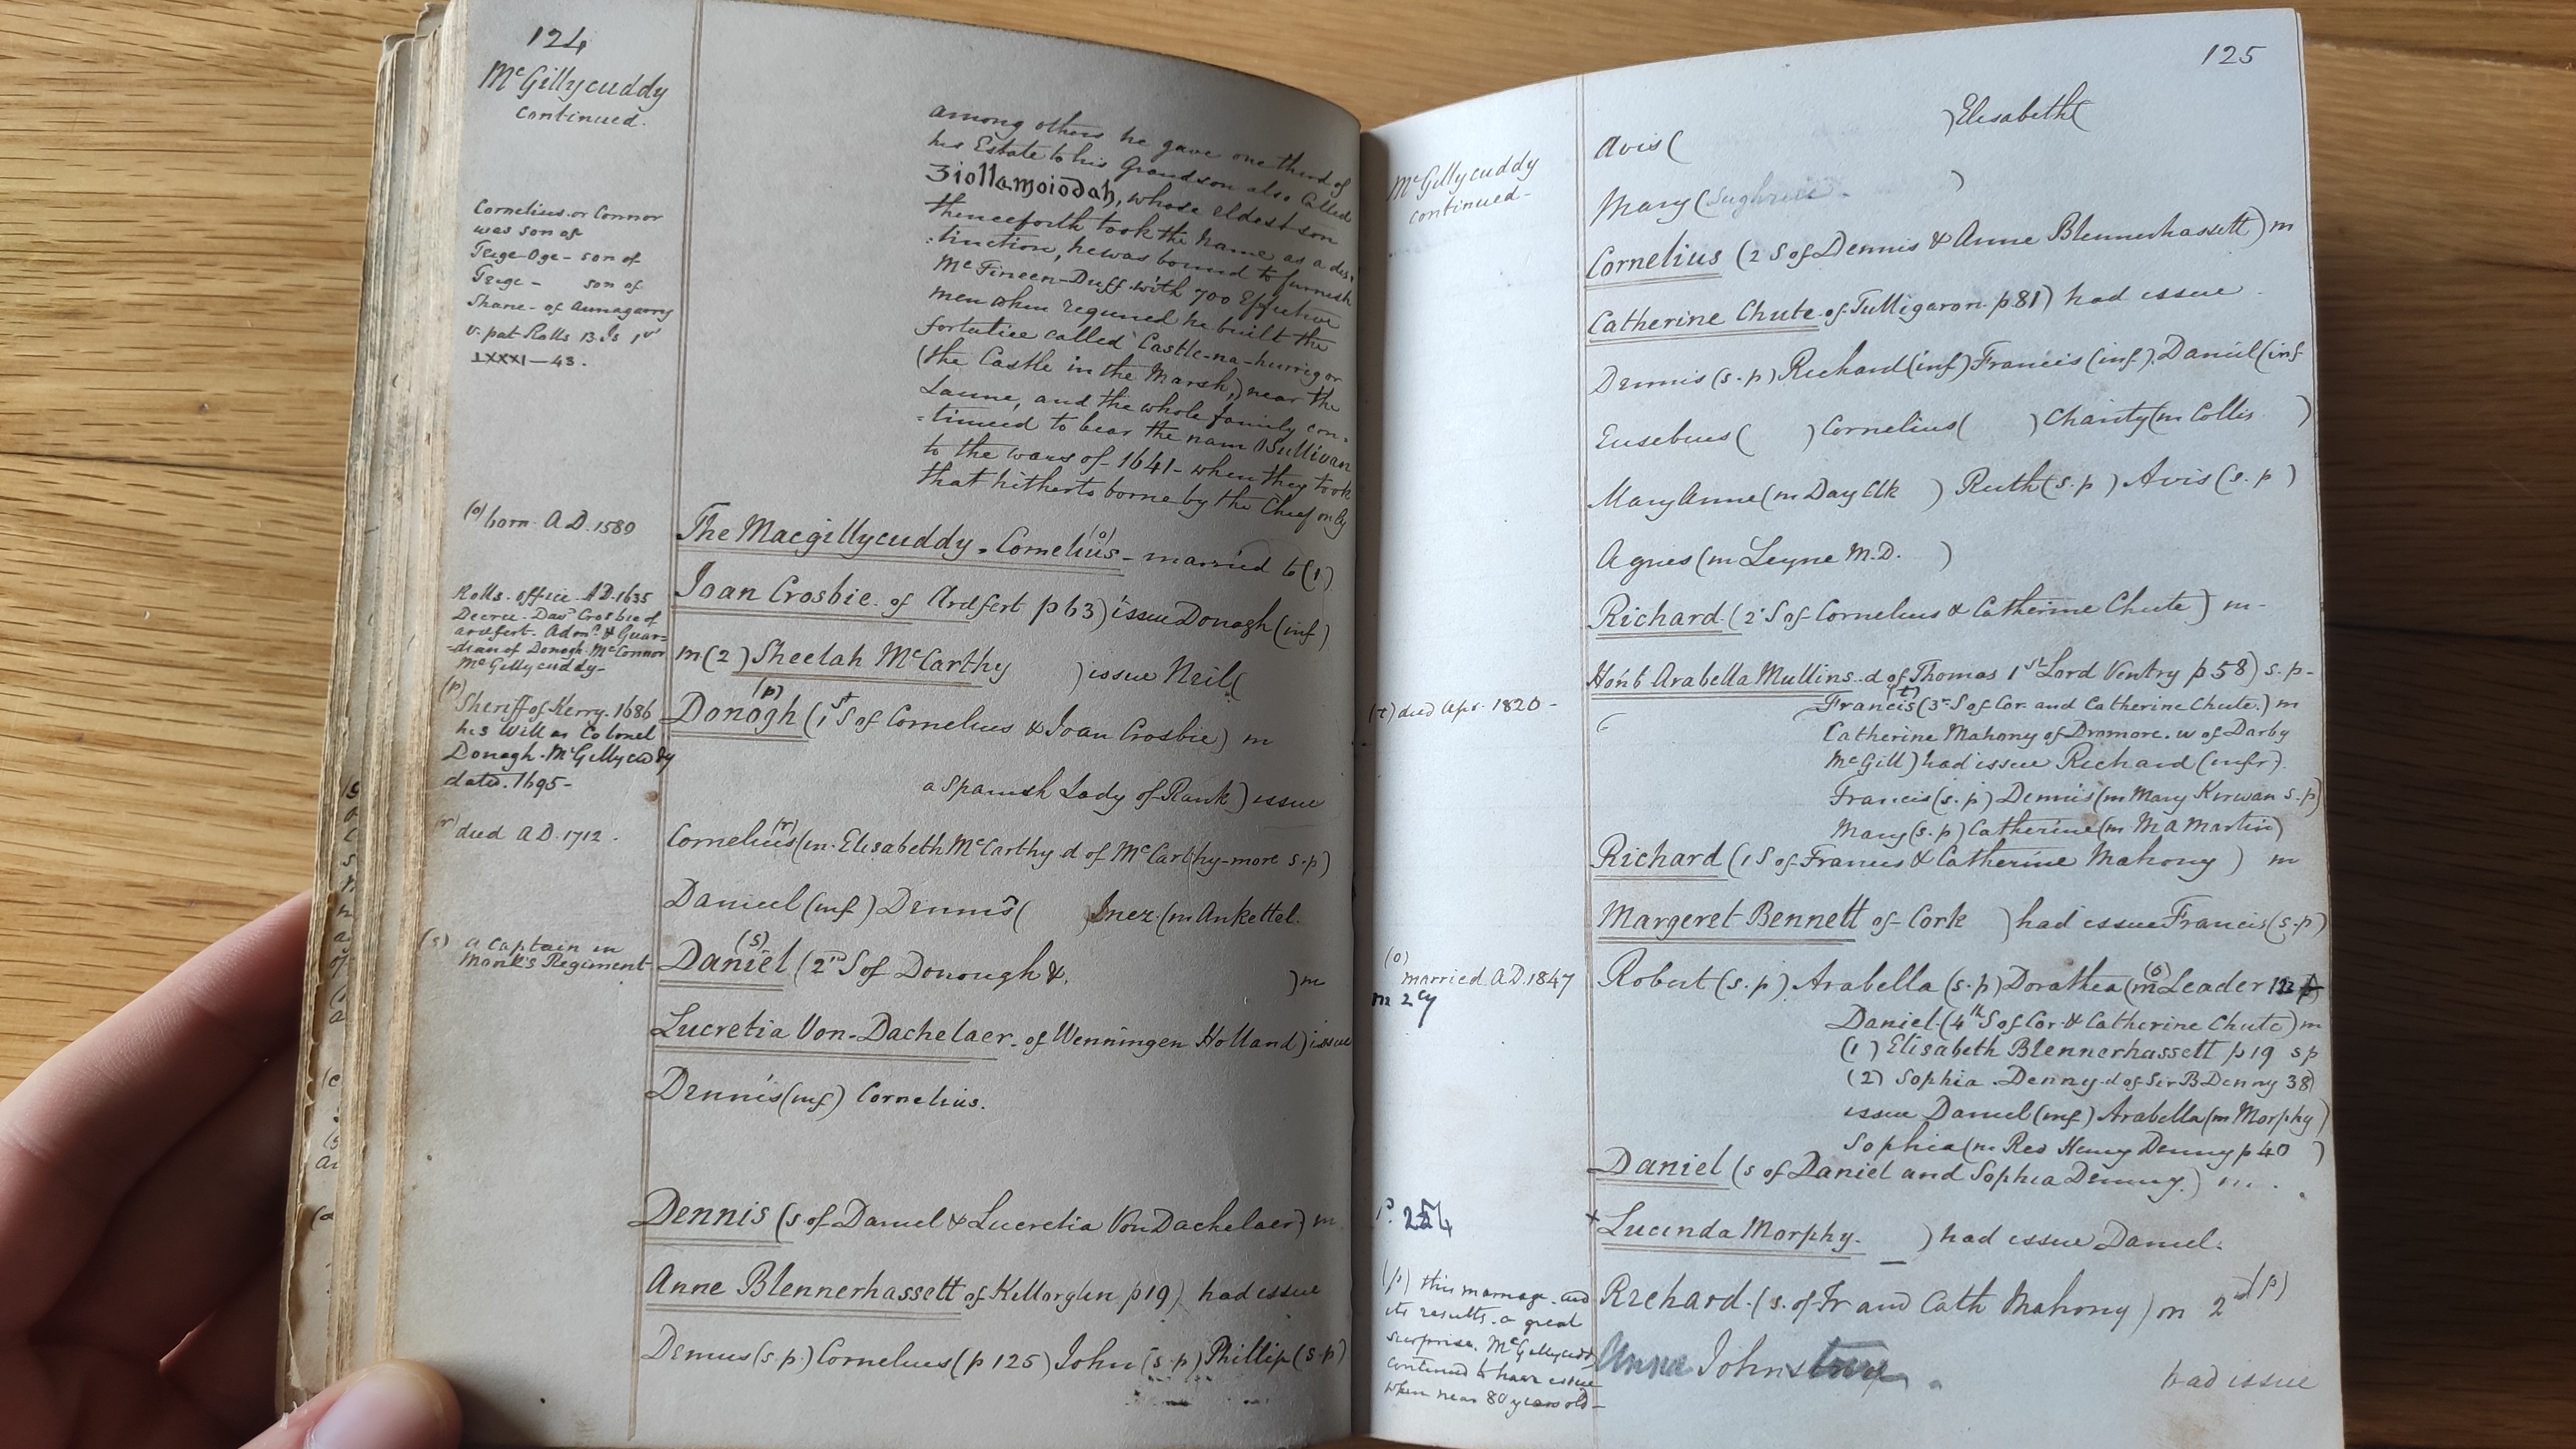 124
McGillycuddy
continued.
among others he gave one third of
his Estate to his Grandson also Called
Ziollamoiodah, whose eldest son
thenceforth took the Name as a dis-
:tinction, he was bound to furnish
McFineen-Duff with 700 Effective
men when required he built the
fortalice called Castle-na-hurrig or
(the Castle in the Marsh,) near the
Laune, and the whole family con-
-tinued to bear the nam OSullivan
to the wars of 1641 - when they took
that hitherto borne by the Chief only
Cornelius or Connor
was son of
Teige-Oge - son of
Teige - son of
Shane - of
v. pat Rolls
LXXXI - 43.
(o) born A D. 1580
The Macgillycuddy. Cornelius (o) - married to (1)
Joan Crosbie of Ardfert p 63) issue Donogh (inf)
m (2) Sheelah McCarthy ) issue Neil (
Rolls. office AD. 1635
Decree. Davd Crosbie of
ardfert. Admr. & Guar=
-dian of Donogh McConnor
McGillycuddy-
Donogh (p) (1st S of Cornelius & Joan Crosbie) m
a Spanish Lady of Rank) issue
(p) Sheriff of Kerry. 1686
his Will as Colonel
Donogh McGillycuddy
dated. 1695-
Cornelius (r) (m. Elisabeth McCarthy d of McCarthy-more s.p)
(r) died A D. 1712.
Daniel (inf) Dennis ( ) Inez (m Ankettel.
Daniel (s) (2nd S of Donough & )m
(s) a Captain in
Monk's Regiment
Lucretia Von-Dachelaer. of Wenningen Holland) issue
Dennis (inf) Cornelius.
Dennis (s of Daniel & Lucretia Von Dachelaer) m
Anne Blennerhassett of Killorglin p 19) had issue
Dennis (s.p.) Cornelius (p 125) John (s.p) Phillip (s.p)
125
McGillycuddy
continued-
Avis ( ) Elisabeth (
Mary ( )
Cornelius (2 S of Dennis & Anne Blennerhassett) m
Catherine Chute of Tulligaron. p. 81) had issue
Dennis (s.p) Richard (inf) Francis (inf). Daniel (inf
Eusebius ( ) Cornelius ( ) Charity (m Collis )
Mary Anne (m Day Clk ) Ruth (s.p) Avis (s.p)
Agnes (m Leyne M.D. )
Richard (2 S of Cornelius & Catherine Chute) m-
Honb Arabella Mullins. d of Thomas 1st Lord Ventry p 58) s.p-
Francis (t) (3r S of Cor. and Catherine Chute.) m
(t) died Apr. 1820-
Catherine Mahony of Dromore. w of Darby
McGill) had issue Richard (infr).
Francis (s.p) Dennis (m Mary Kirwan s.p)
Mary (s.p) Catherine (m M A Martin)
Richard (1 S of Francis & Catherine Mahony ) m
Margeret Bennett of Cork ) had issue Francis (s.p)
Robert (s.p) Arabella (s.p) Dorathea (m (o) Leader
(o) married A D. 1847
m 2cy
Daniel (4th S of Cor & Catherine Chute) m
(1) Elisabeth Blennerhassett p 19 s p
(2) Sophia Denny d of Sir B Denny 38)
issue Daniel (inf) Arabella (m Morphy)
Sophia (m Rev Henry Denny p 40 )
Daniel (s of Daniel and Sophia Denny) m.
P. 254
x Lucinda Morphy. ) had issue Daniel.
Richard. (s. of Fr and Cath Mahony) m 2d (p)
Anna Johnstone. had issue
(p) this marriage. and
its results. a great
surprise. McGillycuddy
continued to have issue
when near 80 years old-